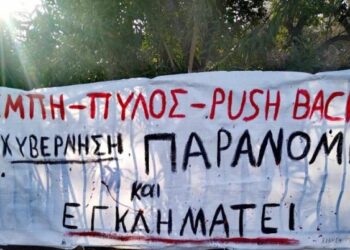 ΜΠΗ-ΠΥΛΟΣ-PUSH BAC
ΚΥΒΕΡΝΗΣΗ ΠΑΡΑΝΟΜ
και
ΕΓΚΛΗΜΑΤΕΙ